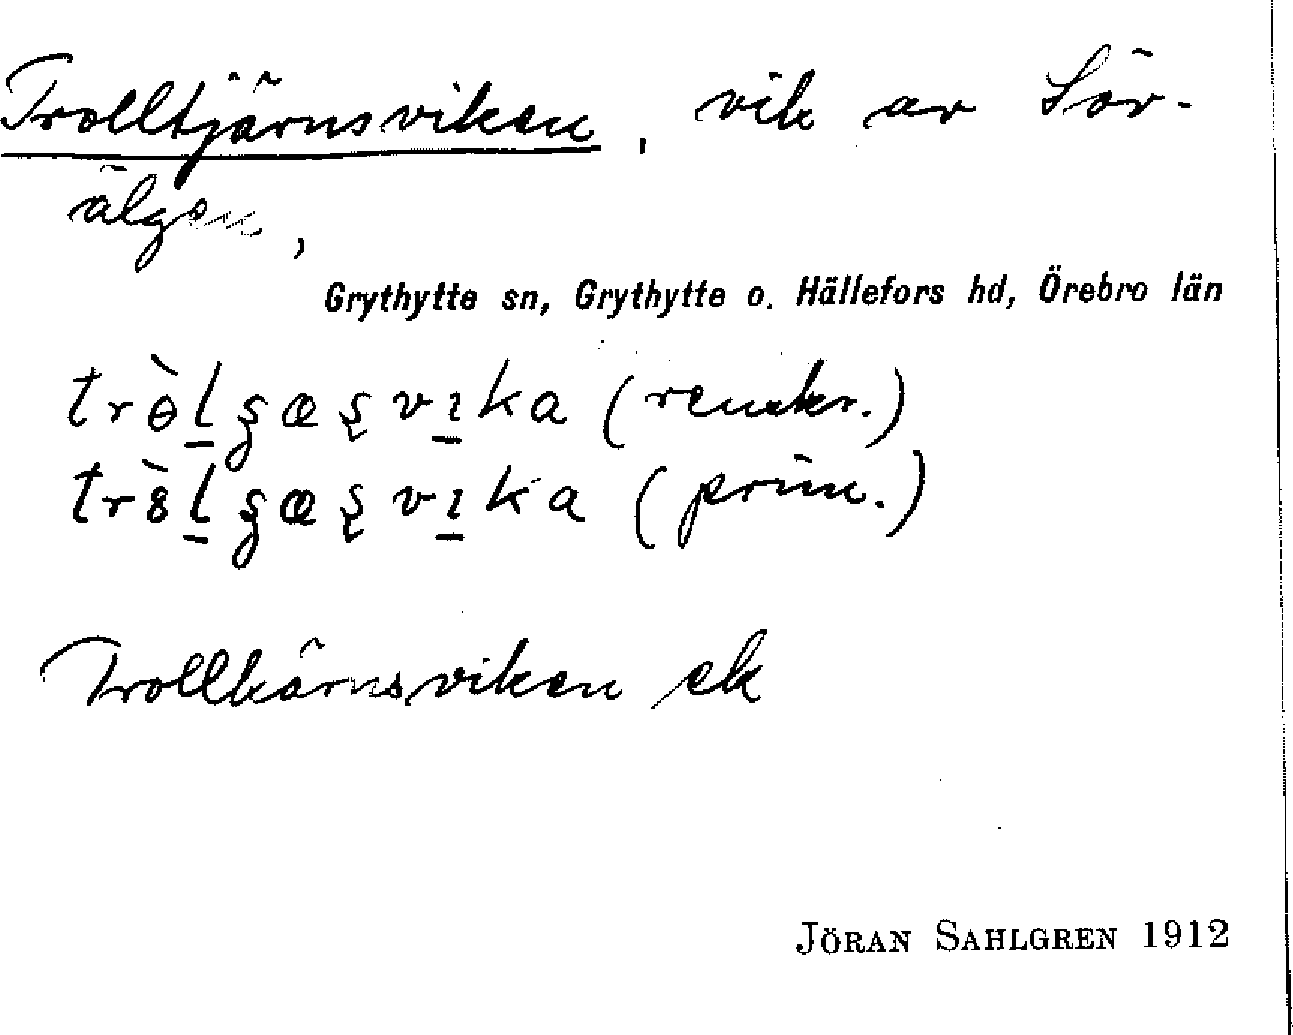 Trolltjärnsviken, vik av Sör-
älgen,
Grythytte sn, Grythytte o. Hällefors hd, Örebro län
trɵ̀l̠ʂæʂvı̠ka (renskr.)
tr8̀l̠ʂæʂvı̠ka (prim.)
Trollkärnsviken ek
JÖRAN SAHLGREN 1912